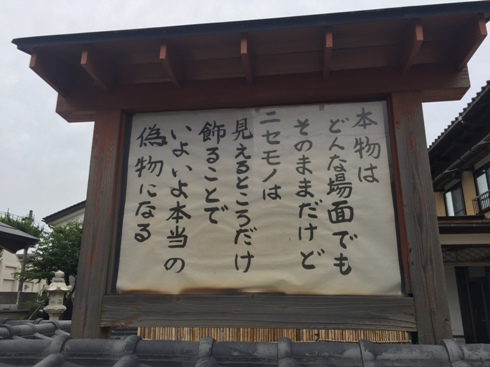 本物は
どんな場面でも
そのままだけど
ニセモノは
見えるところだけ
飾ることで
いよいよ本当の
偽物になる